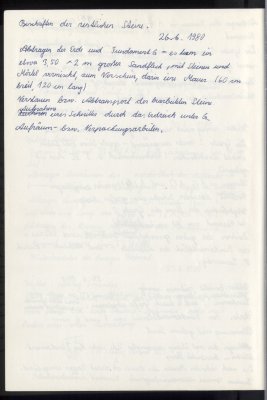 Beschaffen der restlichen Steine.
26.6.1980
Abtragen der Erde und Fundament 6 = es kam in
etwa 3,50 - 2 m großer Sandfleck, mit Steinen und
Mörtel vermischt, zum Vorschein, darin eine Mauer (60 cm
breit, 120 cm lang)
Verstauen bzw. Abtransport der bearbeiteten Steine
Aufnahme eines Schnittes durch das Erdreich unter G
Aufräum- bzw. Verpackungsarbeiten.